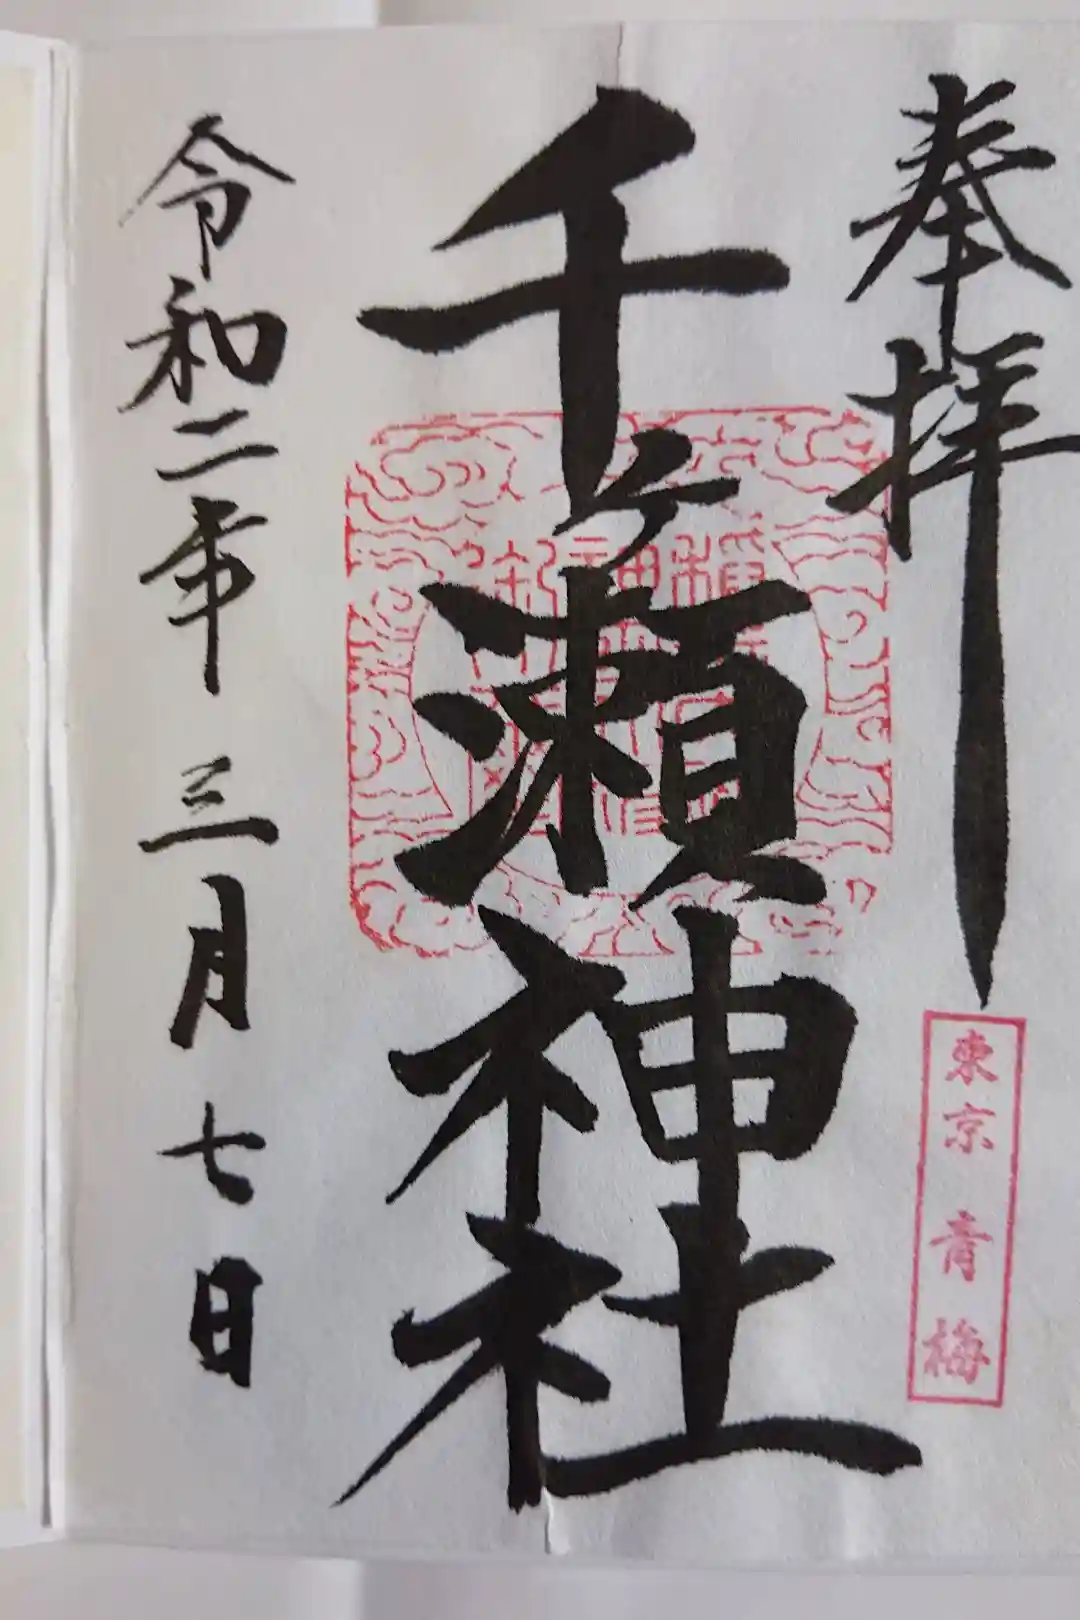 奉拝
東京青梅
千ヶ瀬神社
令和二年三月七日